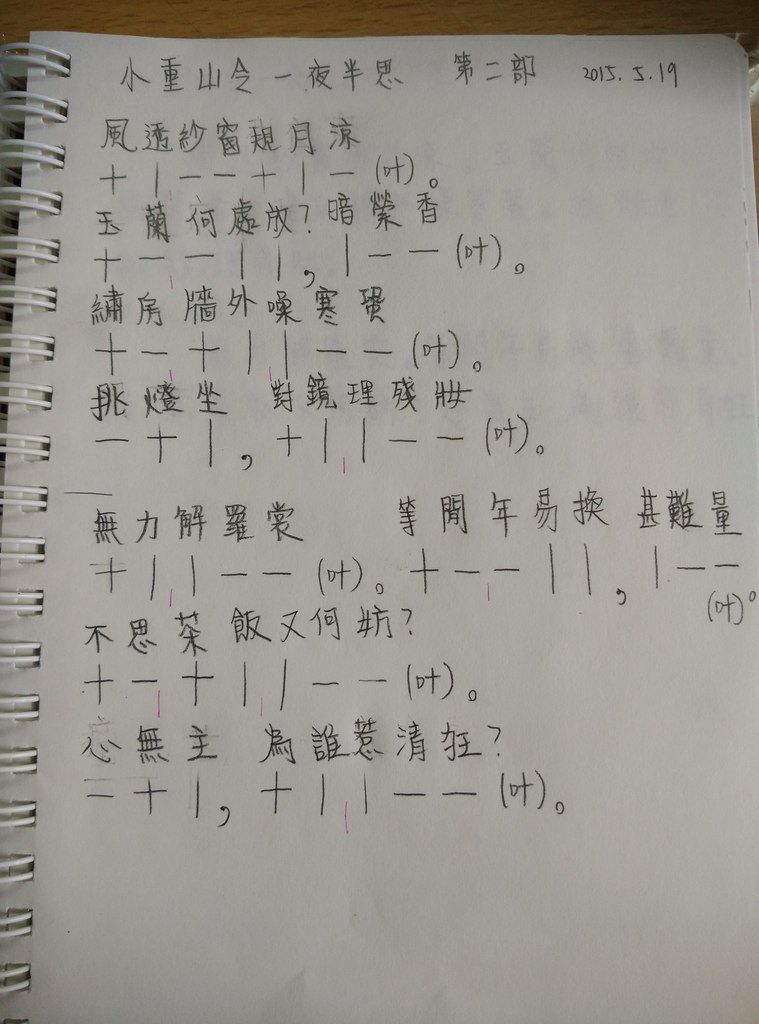 小重山令一夜半思 第二部 2015.5.19
風透紗窗覗月涼
十｜一一十｜一(叶)。
玉蘭何處放？暗縈香
十一一｜｜，｜一一(叶)。
繡房牆外噪寒蛩
十一十｜｜一一(叶)。
挑燈坐 對鏡理殘妝
一十｜，十｜｜一一(叶)。
無力解羅裳 等閒年易換 甚難量
十｜｜一一(叶)。十一一｜｜，｜一一(叶)。
不思茶飯又何妨？
十一十｜｜一一(叶)。
心無主 為誰惹清狂？
一十｜，十｜｜一一(叶)。